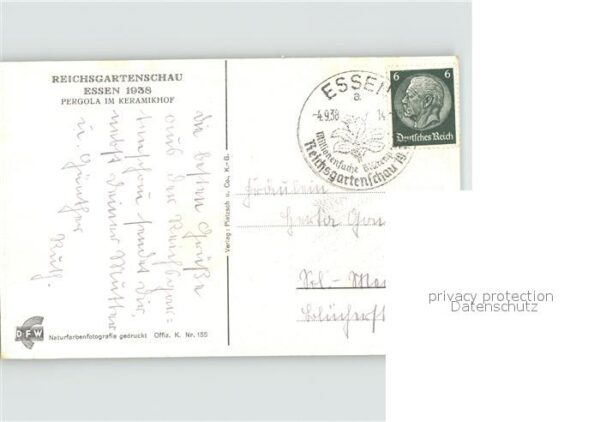 REICHSGARTENSCHAU
ESSEN 1938
PERGOLA IM KERAMIKHOF
Die besten Grüße
aus der Reichsgar=
tenschau sendet Dir,
nebst Deiner Mutter
u. Günther
Ruth.
DFW
Naturfarbenfotografie gedruckt Offiz. K. Nr. 155
Verlag: Pletzsch u. Co. K.-G.
ESSEN
a
-4.9.38
14-
Millionenfache
Reichsgartenschau 19
6 6
Deutsches Reich
Fräulein
Herta
privacy protection
Datenschutz